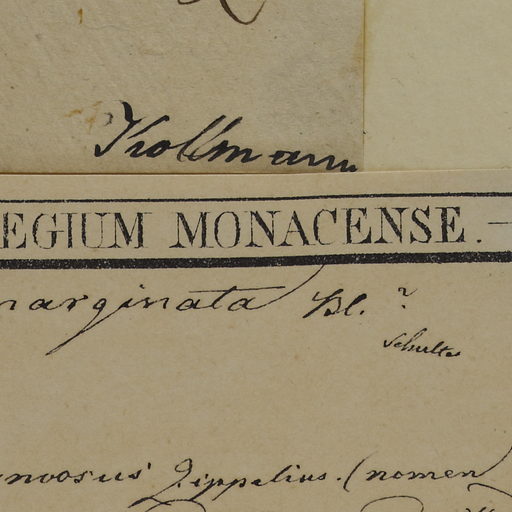 Kollmann
EGIUM MONACENSE. —
marginata Bl. ?
Schultes
Zippelius. (nomen